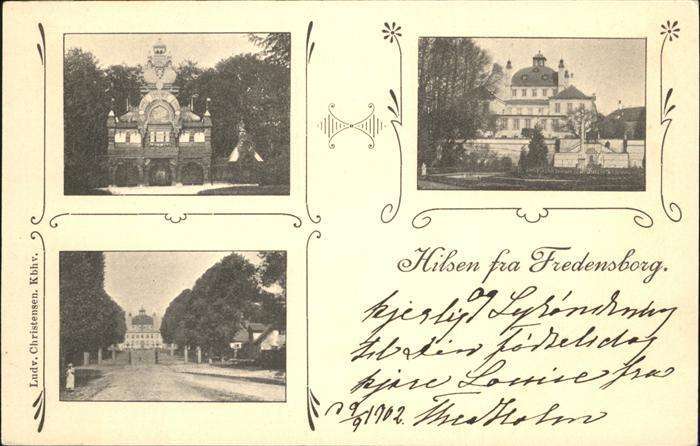 Hilsen fra Fredensborg.
Ludv. Christensen. Kbhv.
kjerlig og Lykønskning
til din fødselsdag
kjære Louise fra
1902. Thea Holm